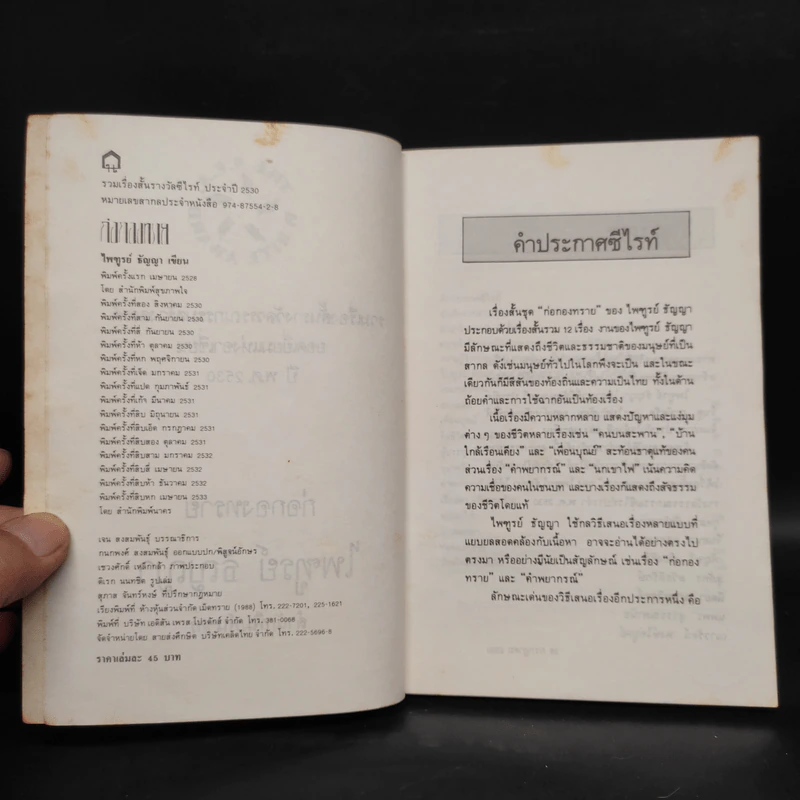 รวมเรื่องสั้นรางวัลซีไรท์ ประจำปี 2530
หมายเลขสากลประจำหนังสือ 974-87554-2-8
ก่อกองทราย
ไพฑูรย์ ธัญญา เขียน
พิมพ์ครั้งแรก เมษายน 2528
โดย สำนักพิมพ์สุขภาพใจ
พิมพ์ครั้งที่สอง สิงหาคม 2530
พิมพ์ครั้งที่สาม กันยายน 2530
พิมพ์ครั้งที่สี่ กันยายน 2530
พิมพ์ครั้งที่ห้า ตุลาคม 2530
พิมพ์ครั้งที่หก พฤศจิกายน 2530
พิมพ์ครั้งที่เจ็ด มกราคม 2531
พิมพ์ครั้งที่แปด กุมภาพันธ์ 2531
พิมพ์ครั้งที่เก้า มีนาคม 2531
พิมพ์ครั้งที่สิบ มิถุนายน 2531
พิมพ์ครั้งที่สิบเอ็ด กรกฎาคม 2531
พิมพ์ครั้งที่สิบสอง ตุลาคม 2531
พิมพ์ครั้งที่สิบสาม มกราคม 2532
พิมพ์ครั้งที่สิบสี่ เมษายน 2532
พิมพ์ครั้งที่สิบห้า ธันวาคม 2532
พิมพ์ครั้งที่สิบหก เมษายน 2533
โดย สำนักพิมพ์นาคร
เจน สงสมพันธุ์ บรรณาธิการ
กนกพงศ์ สงสมพันธุ์ ออกแบบปก/พิสูจน์อักษร
เชวงศักดิ์ เหล็กกล้า ภาพประกอบ
ดิเรก นนทชิต รูปเล่ม
สุภาส จันทร์หงษ์ ที่ปรึกษากฎหมาย
เรียงพิมพ์ที่ ห้างหุ้นส่วนจำกัด เม็ดทราย (1988) โทร. 222-7201, 225-1621
พิมพ์ที่ บริษัท เอดิสัน เพรส โปรดักส์ จำกัด โทร. 381-0068
จัดจำหน่ายโดย สายส่งศึกษิต บริษัทเคล็ดไทย จำกัด โทร. 222-5698-8
ราคาเล่มละ 45 บาท
คำประกาศซีไรท์
เรื่องสั้นชุด "ก่อกองทราย" ของ ไพฑูรย์ ธัญญา
ประกอบด้วยเรื่องสั้นรวม 12 เรื่อง งานของไพฑูรย์ ธัญญา
มีลักษณะที่แสดงถึงชีวิตและธรรมชาติของมนุษย์ที่เป็น
สากล ดังเช่นมนุษย์ทั่วไปในโลกพึงจะเป็น และในขณะ
เดียวกันก็มีสีสันของท้องถิ่นและความเป็นไทย ทั้งในด้าน
ถ้อยคำและการใช้ฉากอันเป็นท้องเรื่อง
เนื้อเรื่องมีความหลากหลาย แสดงปัญหาและแง่มุม
ต่าง ๆ ของชีวิตหลายเรื่องเช่น "คนบนสะพาน", "บ้าน
ใกล้เรือนเคียง" และ "เพื่อนบุณย์" สะท้อนธาตุแท้ของคน
ส่วนเรื่อง "คำพยากรณ์" และ "นกเขาไฟ" เน้นความคิด
ความเชื่อของคนในชนบท และบางเรื่องก็แสดงถึงสัจธรรม
ของชีวิตโดยแท้
ไพฑูรย์ ธัญญา ใช้กลวิธีเสนอเรื่องหลายแบบที่
แยบยลสอดคล้องกับเนื้อหา อาจจะอ่านได้อย่างตรงไป
ตรงมา หรืออย่างมีนัยเป็นสัญลักษณ์ เช่นเรื่อง "ก่อกอง
ทราย" และ "คำพยากรณ์"
ลักษณะเด่นของวิธีเสนอเรื่องอีกประการหนึ่ง คือ